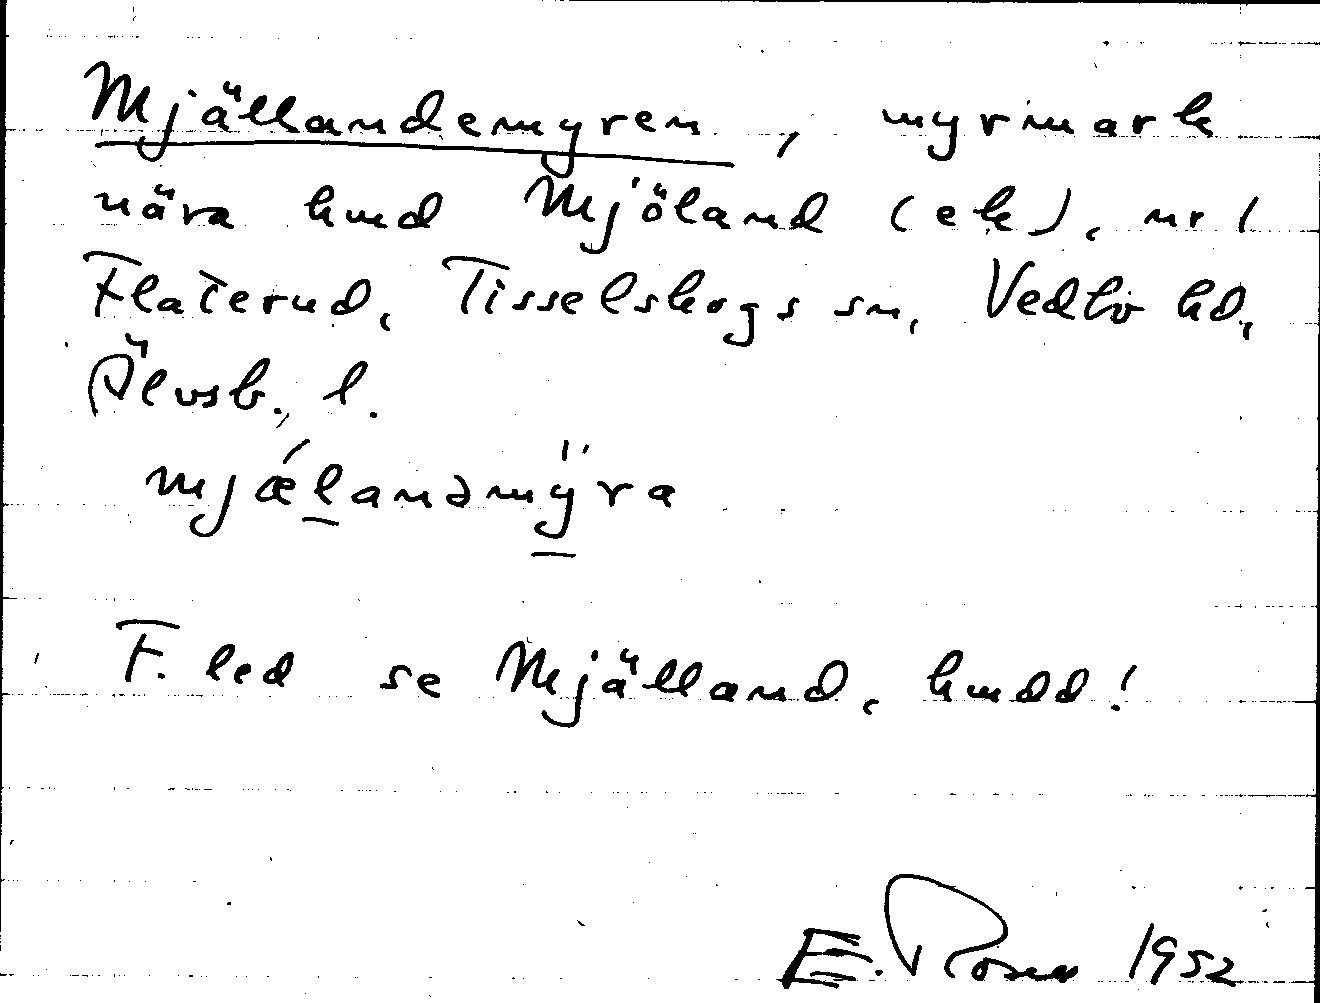 Mjällandemyren, myrmark
nära hmd Mjöland (ek), nr 1
Flaterud, Tisselskogs sn, Vedbo hd,
Älvsb. l.
mjǽlandmy̋ra
F. led se Mjälland, hmdd!
E. Rosen 1952